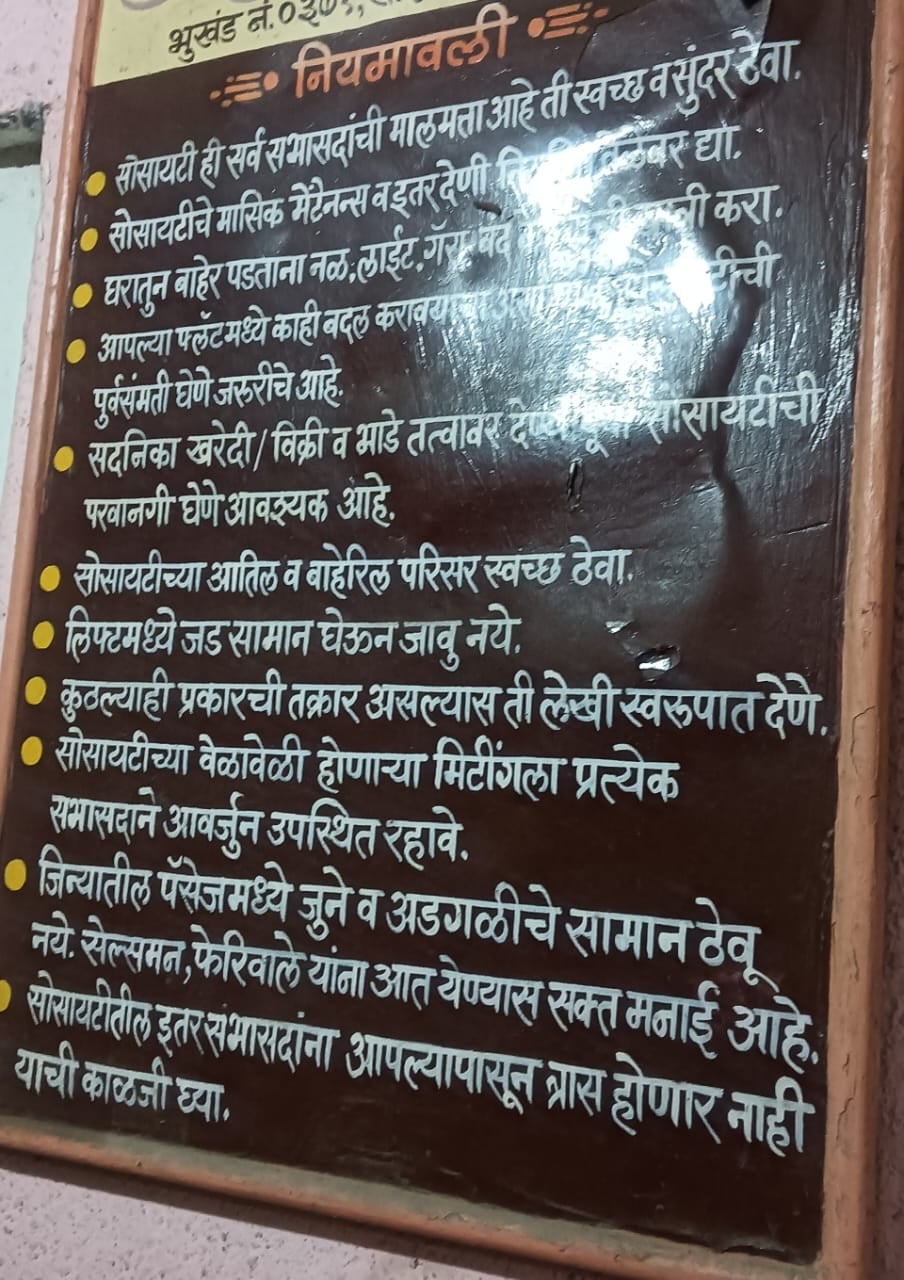 भुखंड नं.०३७९,
नियमावली
सोसायटी ही सर्व सभासदांची मालमत्ता आहे ती स्वच्छ व सुंदर ठेवा.
सोसायटीचे मासिक मेंटेनन्स व इतर देणी वेळेवर द्या.
घरातुन बाहेर पडताना नळ,लाईट,गॅस बंद करा.
आपल्या फ्लॅटमध्ये काही बदल
पुर्वसंमती घेणे जरूरीचे आहे.
सदनिका खरेदी/विक्री व भाडे तत्वावर सोसायटीची
परवानगी घेणे आवश्यक आहे.
सोसायटीच्या आतिल व बाहेरिल परिसर स्वच्छ ठेवा.
लिफ्टमध्ये जड सामान घेऊन जावु नये.
कुठल्याही प्रकारची तक्रार असल्यास ती लेखी स्वरूपात देणे.
सोसायटीच्या वेळावेळी होणाऱ्या मिटींगला प्रत्येक
सभासदाने आवर्जुन उपस्थित रहावे.
जिन्यातील पॅसेजमध्ये जुने व अडगळीचे सामान ठेवू
नये. सेल्समन,फेरिवाले यांना आत येण्यास सक्त मनाई आहे.
सोसायटीतील इतर सभासदांना आपल्यापासून त्रास होणार नाही
याची काळजी घ्या.